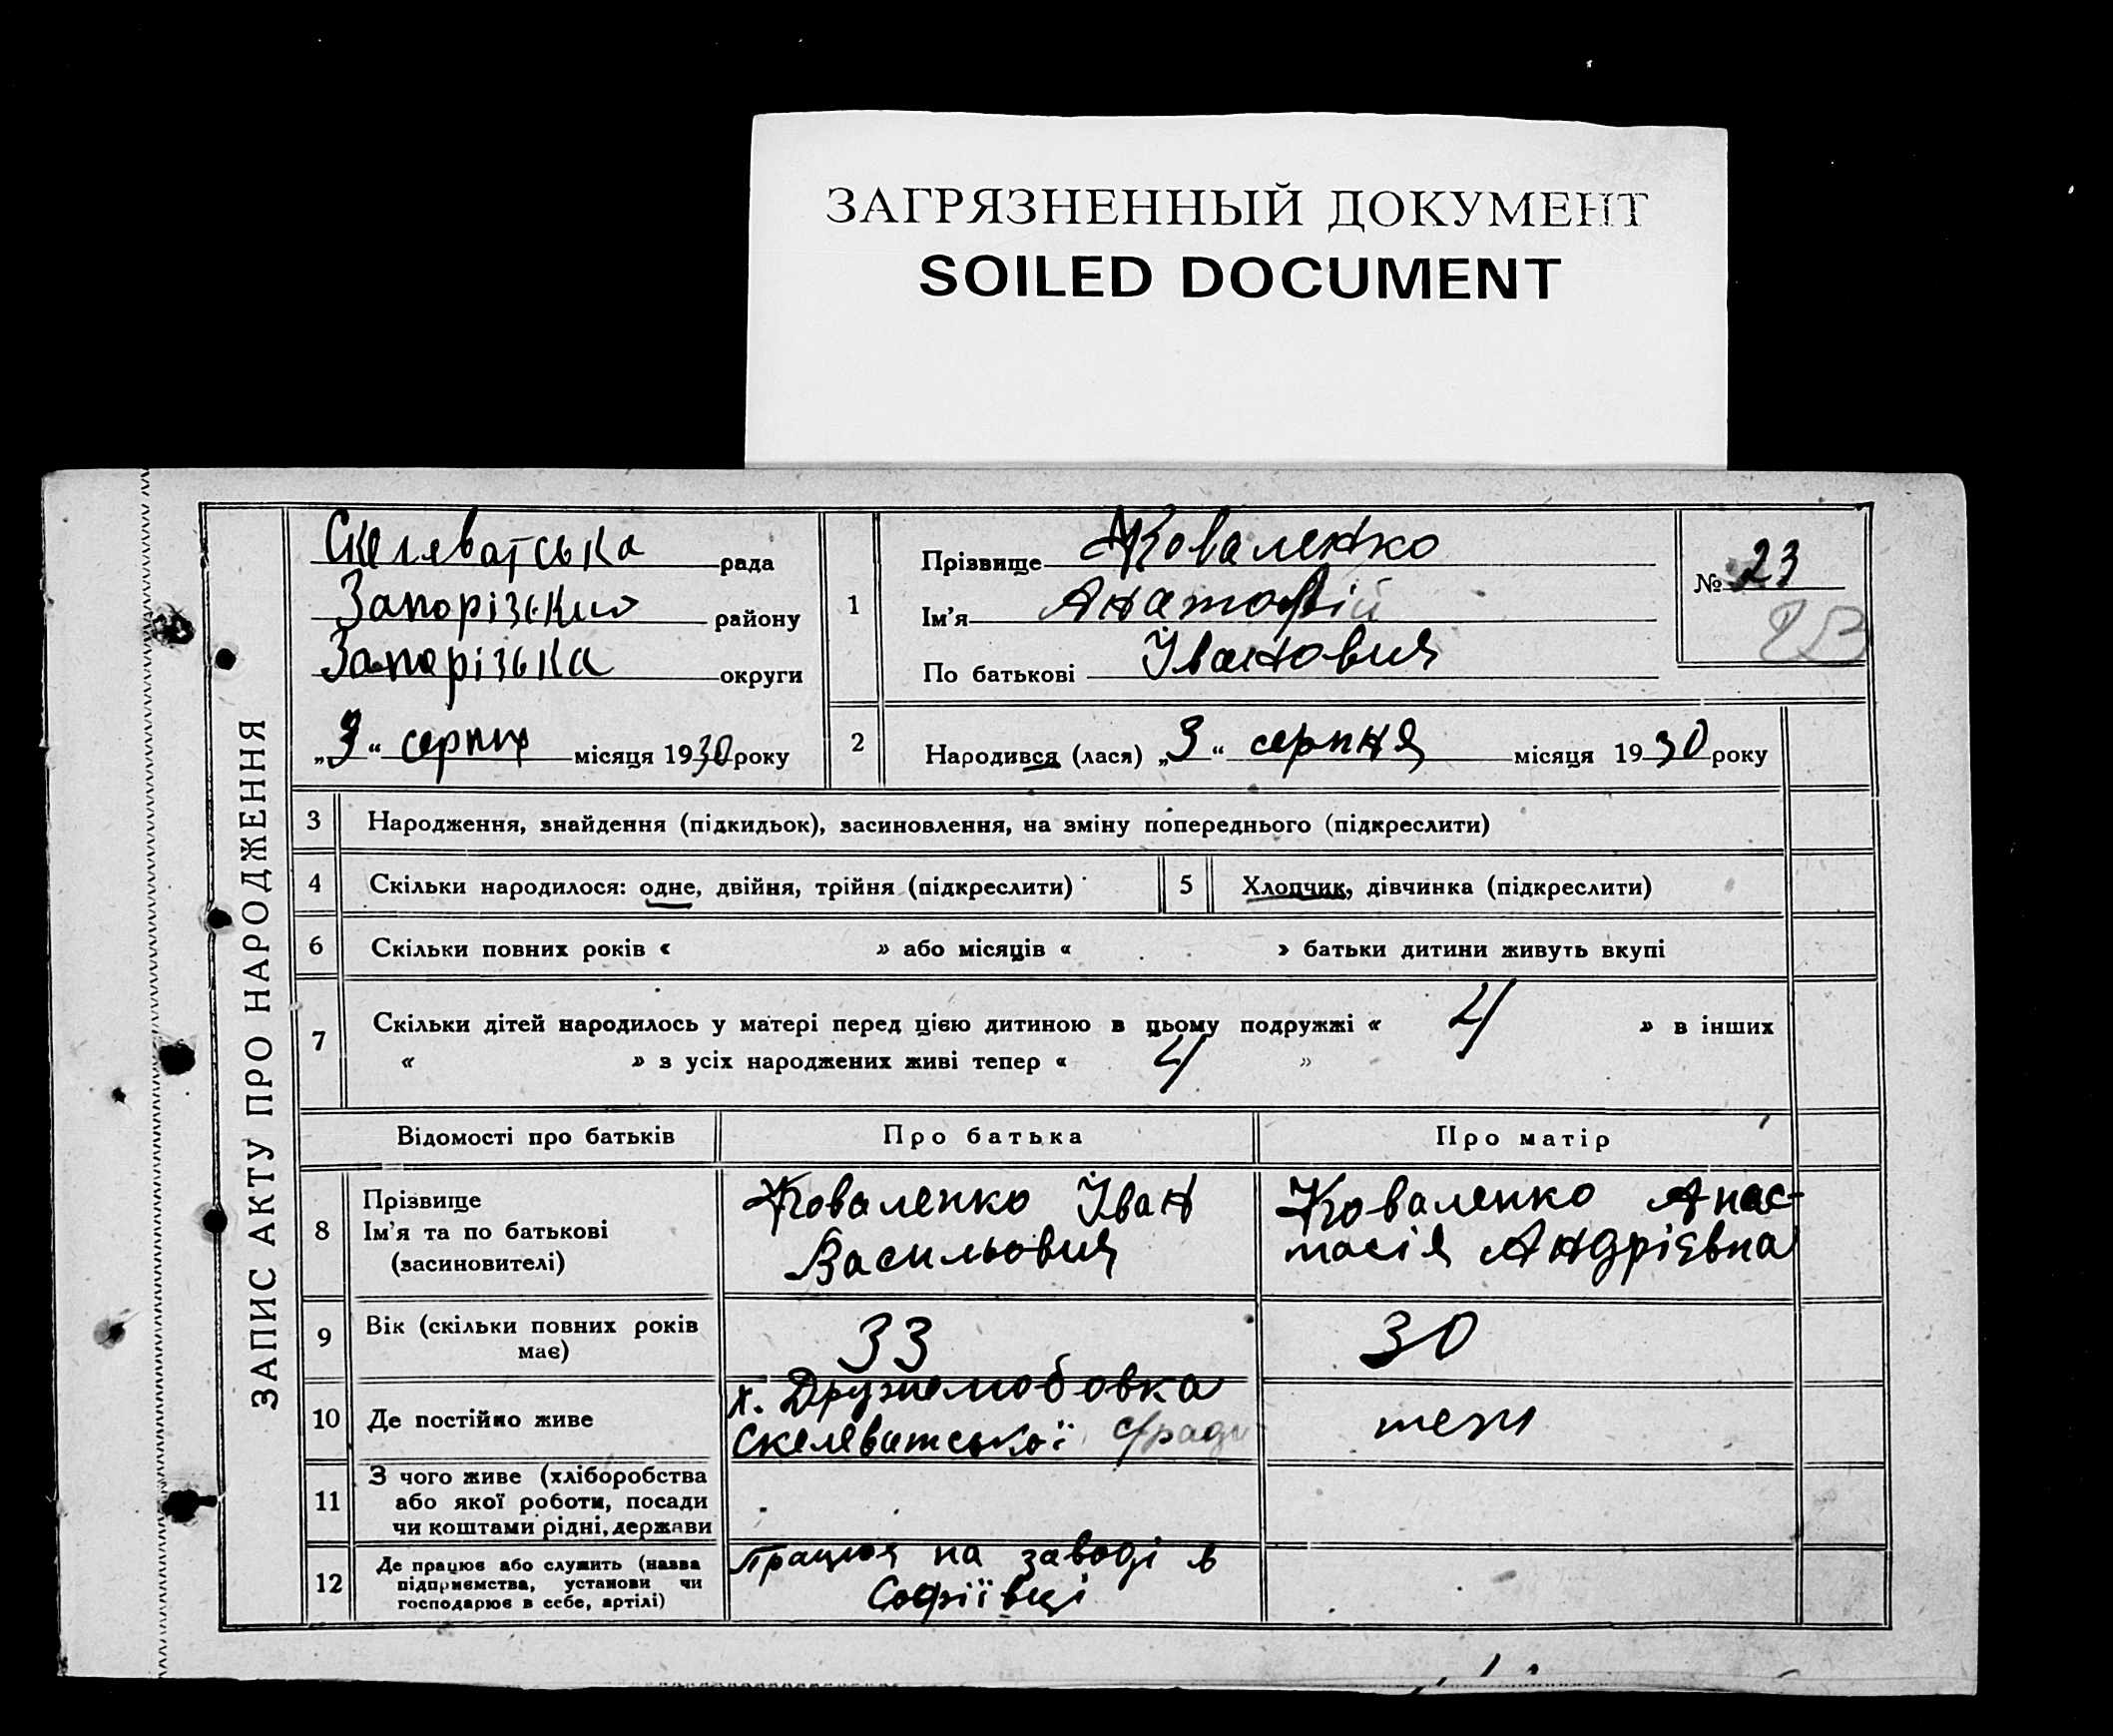 ЗАГРЯЗНЕННЫЙ ДОКУМЕНТ
SOILED DOCUMENT
ЗАПИС АКТУ ПРО НАРОДЖЕННЯ
Скелеватська рада
Запорізький району
Запорізька округи
„3“ серпня місяця 1930 року
1
Прізвище Коваленко
Ім'я Анатолій
По батькові Іванович
№ 23
23
2 Народився (лася) „3“ серпня місяця 1930 року
3 Народження, знайдення (підкидьок), засиновлення, на зміну попереднього (підкреслити)
4 Скільки народилося: одне, двійня, трійня (підкреслити) 5 Хлопчик, дівчинка (підкреслити)
6 Скільки повних років « » або місяців « » батьки дитини живуть вкупі
7 Скільки дітей народилось у матері перед цією дитиною в цьому подружжі « 4 » в інших
« » з усіх народжених живі тепер « 4 »
Відомості про батьків Про батька Про матір
8 Прізвище
Ім'я та по батькові
(засиновителі)
Коваленко Іван
Васильович
Коваленко Анас-
тасія Андрієвна
9 Вік (скільки повних років
має)
33
30
10 Де постійно живе
х. Дружелюбовка
Скелеватської с/ради
теж
11 З чого живе (хліборобства
або якої роботи, посади
чи коштами рідні, держави
12 Де працює або служить (назва
підприємства, установи чи
господарює в себе, артілі)
Працює на заводі в
Софіївці